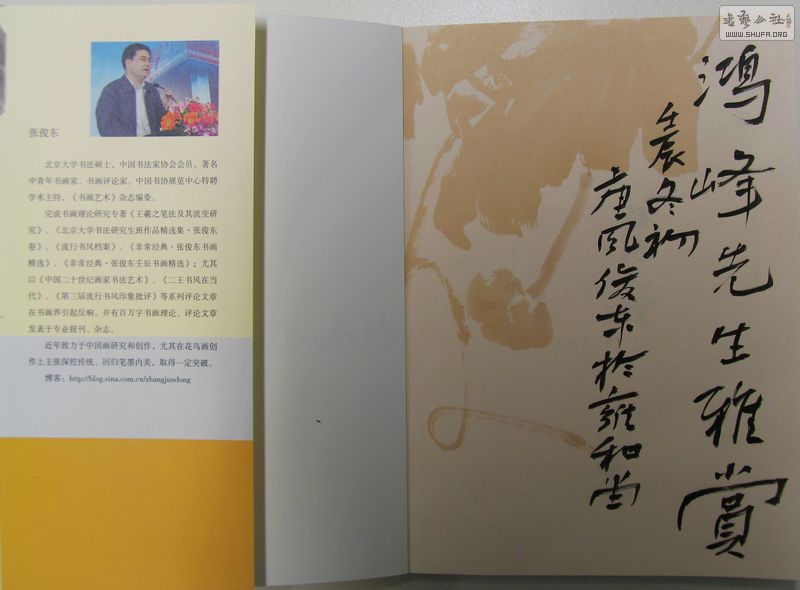 张俊东
北京大学书法硕士，中国书法家协会会员，著名
中青年书画家、书画评论家。中国书协展览中心特聘
学术主持，《书画艺术》杂志编委。
完成书画理论研究专著《王羲之笔法及其流变研
究》、《北京大学书法研究生班作品精选集·张俊东
卷》、《流行书风档案》、《非常经典·张俊东书画
精选》、《非常经典·张俊东壬辰书画精选》；尤其
以《中国二十世纪画家书法艺术》、《二王书风在当
代》、《第三届流行书风印象批评》等系列评论文章
在书画界引起反响。并有百万字书画理论、评论文章
发表于专业报刊、杂志。
近年致力于中国画研究和创作，尤其在花鸟画创
作上主张深挖传统、回归笔墨内美，取得一定突破。
博客：http://blog.sina.com.cn/zhangjundong
鸿峰先生雅赏
壬辰冬初
唐风俊东于雍和堂
书艺公社
WWW.SHUFA.ORG